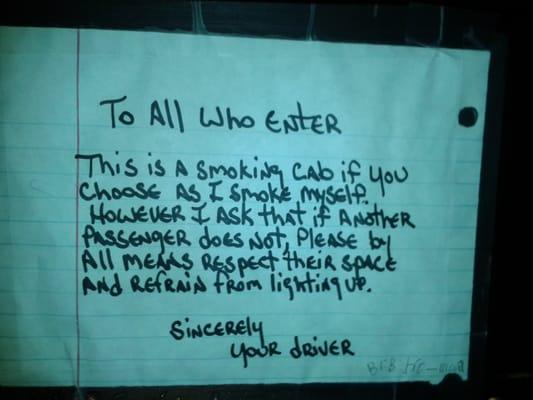 To All Who Enter
This is a smoking cab if you
choose as I smoke myself.
However I ask that if another
passenger does not, please by
all means respect their space
and refrain from lighting up.
Sincerely
your driver